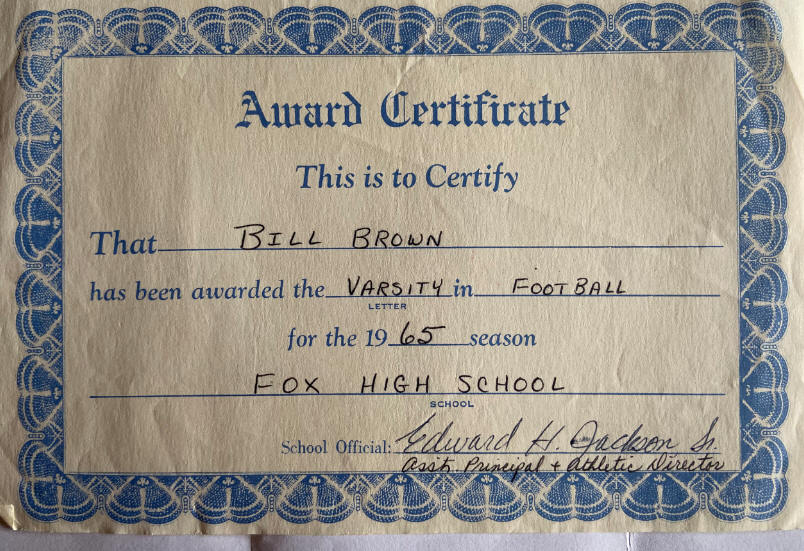 Award Certificate
This is to Certify
That BILL BROWN
has been awarded the VARSITY in FOOTBALL
LETTER
for the 1965 season
FOX HIGH SCHOOL
SCHOOL
School Official: Edward H. Jackson Sr.
Ass't. Principal + Athletic Director